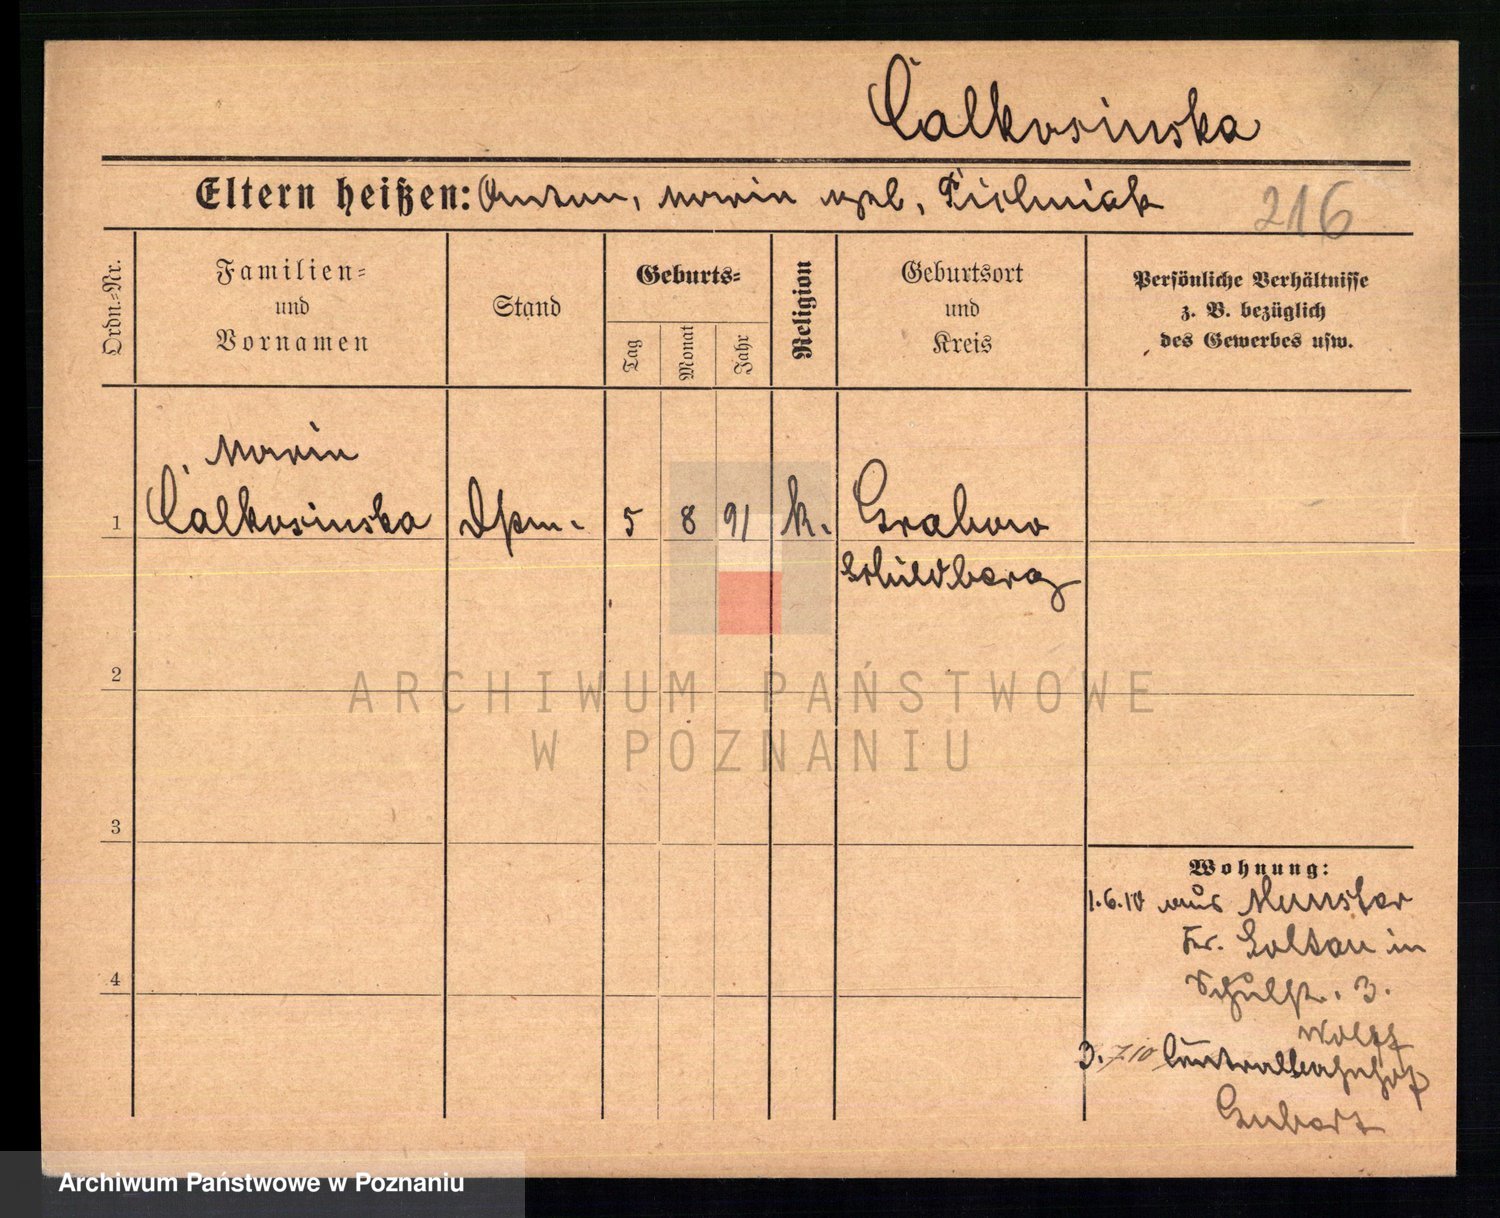 Calkosinska
Eltern heißen: Anton, Maria geb.
216
Ordn.-Nr.
Familien-
und
Vornamen
Stand
Geburts-
Tag
Monat
Jahr
Religion
Geburtsort
und
Kreis
Persönliche Verhältnisse
z. B. bezüglich
des Gewerbes usw.
Maria
1 Calkosinska 5 8 91 k. Grabow
Schildberg
2
ARCHIWUM PAŃSTWOWE
W POZNANIU
3
Wohnung:
1.6.10 aus Munster
Kr. Soltau in
4
Schulstr. 3.
Wolff
3. 7 10 Centralbahnhof
Archiwum Państwowe w Poznaniu